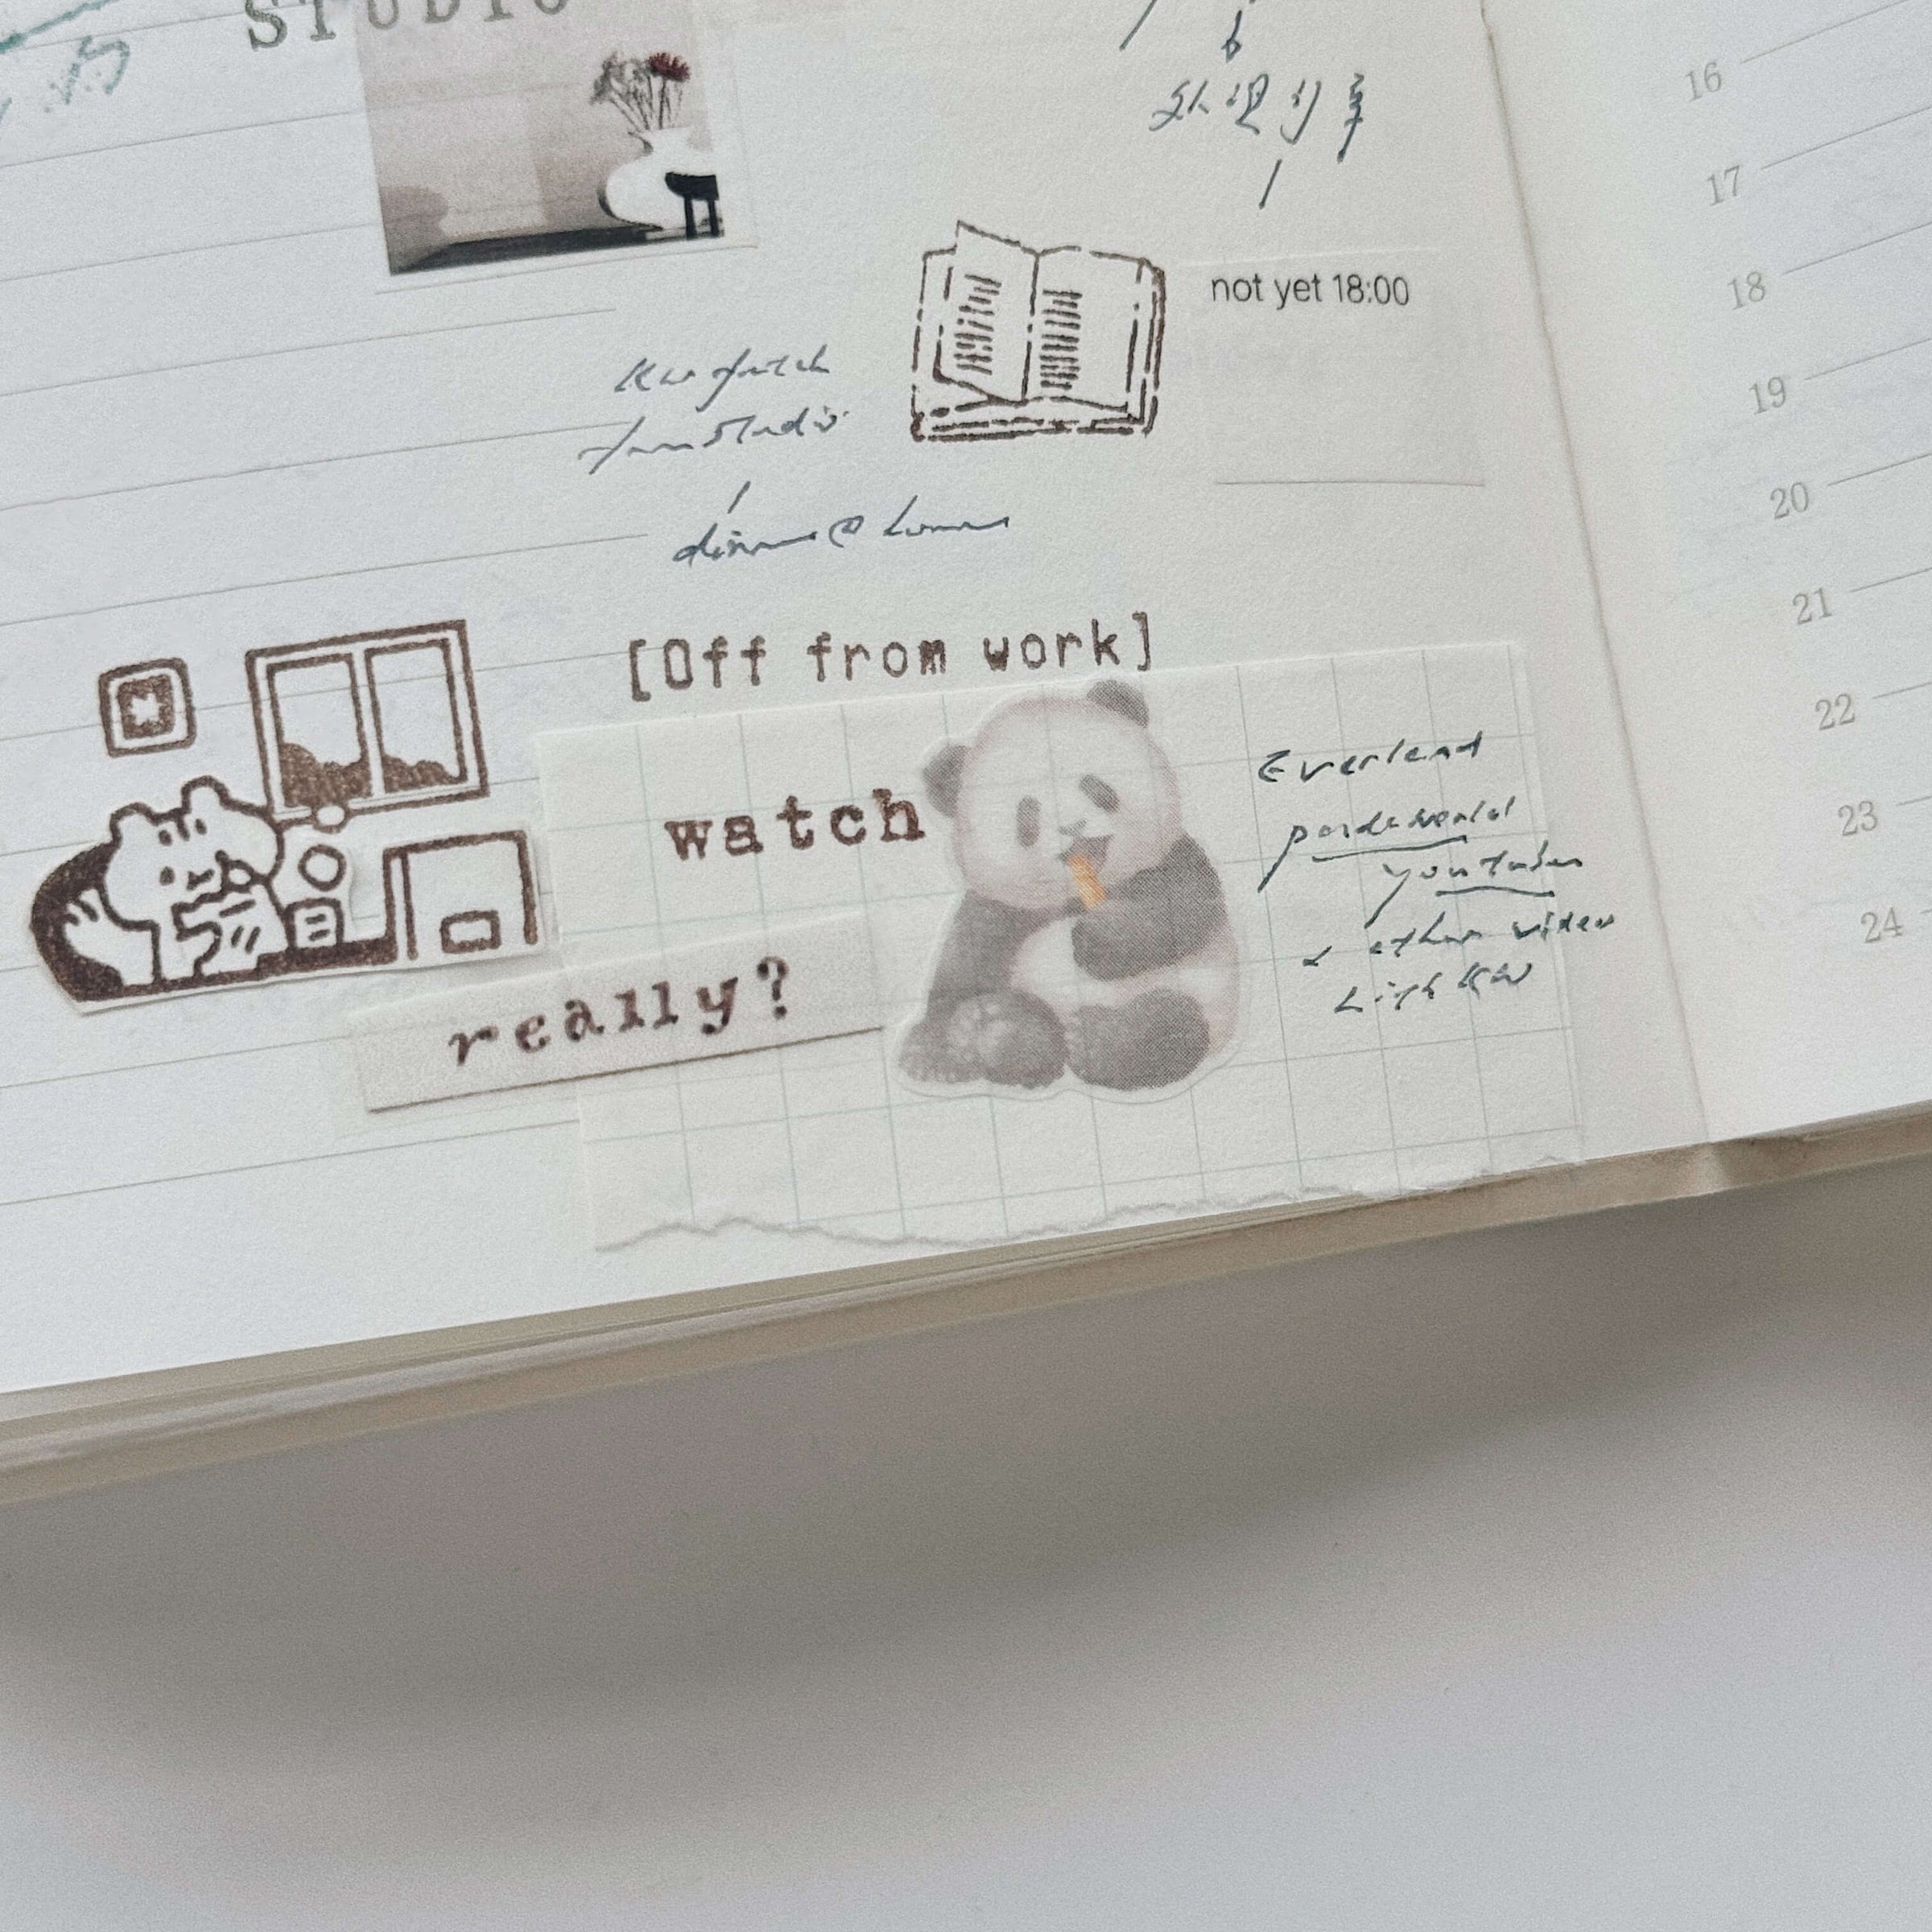 STUDIO
not yet 18:00
KW fetch
from studio
dinner @ home
[Off from work]
watch
really?
Everland
panda world
youtube
& other video
with KW
16
17
18
19
20
21
22
23
24